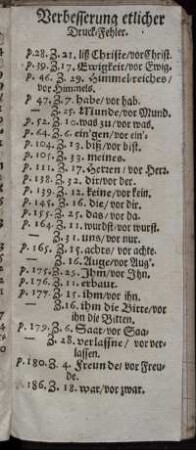 Verbesserung etlicher
Druck-Fehler.
p. 28. Z. 21. liß Christe/vor Christ.
p. 39. Z. 17. Ewigkeit/vor Ewig.
p. 46. Z. 29. Himmelreiches/
vor Himmels.
p. 47. Z. 7. habe/vor hab.
Z. 25. Munde/vor Mund.
p. 52. Z. 10. was zu/vor was.
p. 64. Z. 6. ein'gen/vor ein'.
p. 104. Z. 13. biß/vor bist.
p. 105. Z. 33. meines.
p. 111. Z. 17. Herren/vor Herr.
p. 138. Z. 32. dir/vor der.
p. 139. Z. 12. keine/vor kein.
p. 145. Z. 16. die/vor dir.
p. 155. Z. 25. das/vor da.
p. 164. Z. 11. wurdst/vor wurst.
Z. 31. uns/vor nur.
p. 165. Z. 15. achts/vor achte.
Z. 16. Auge/vor Aug'.
p. 175. Z. 25. Jhm/vor Jhn.
p. 176. Z. 11. erbaut.
p. 177. Z. 15. ihm/vor ihn.
Z. 16. ihm die Bitte/vor
ihn die Bitten.
p. 179. Z. 6. Saat/vor Saa-
Z. 28. verlassne/vor ver-
lassen.
p. 180. Z. 4. Freunde/vor Freu-
de.
p. 186. Z. 18. war/vor zwar.